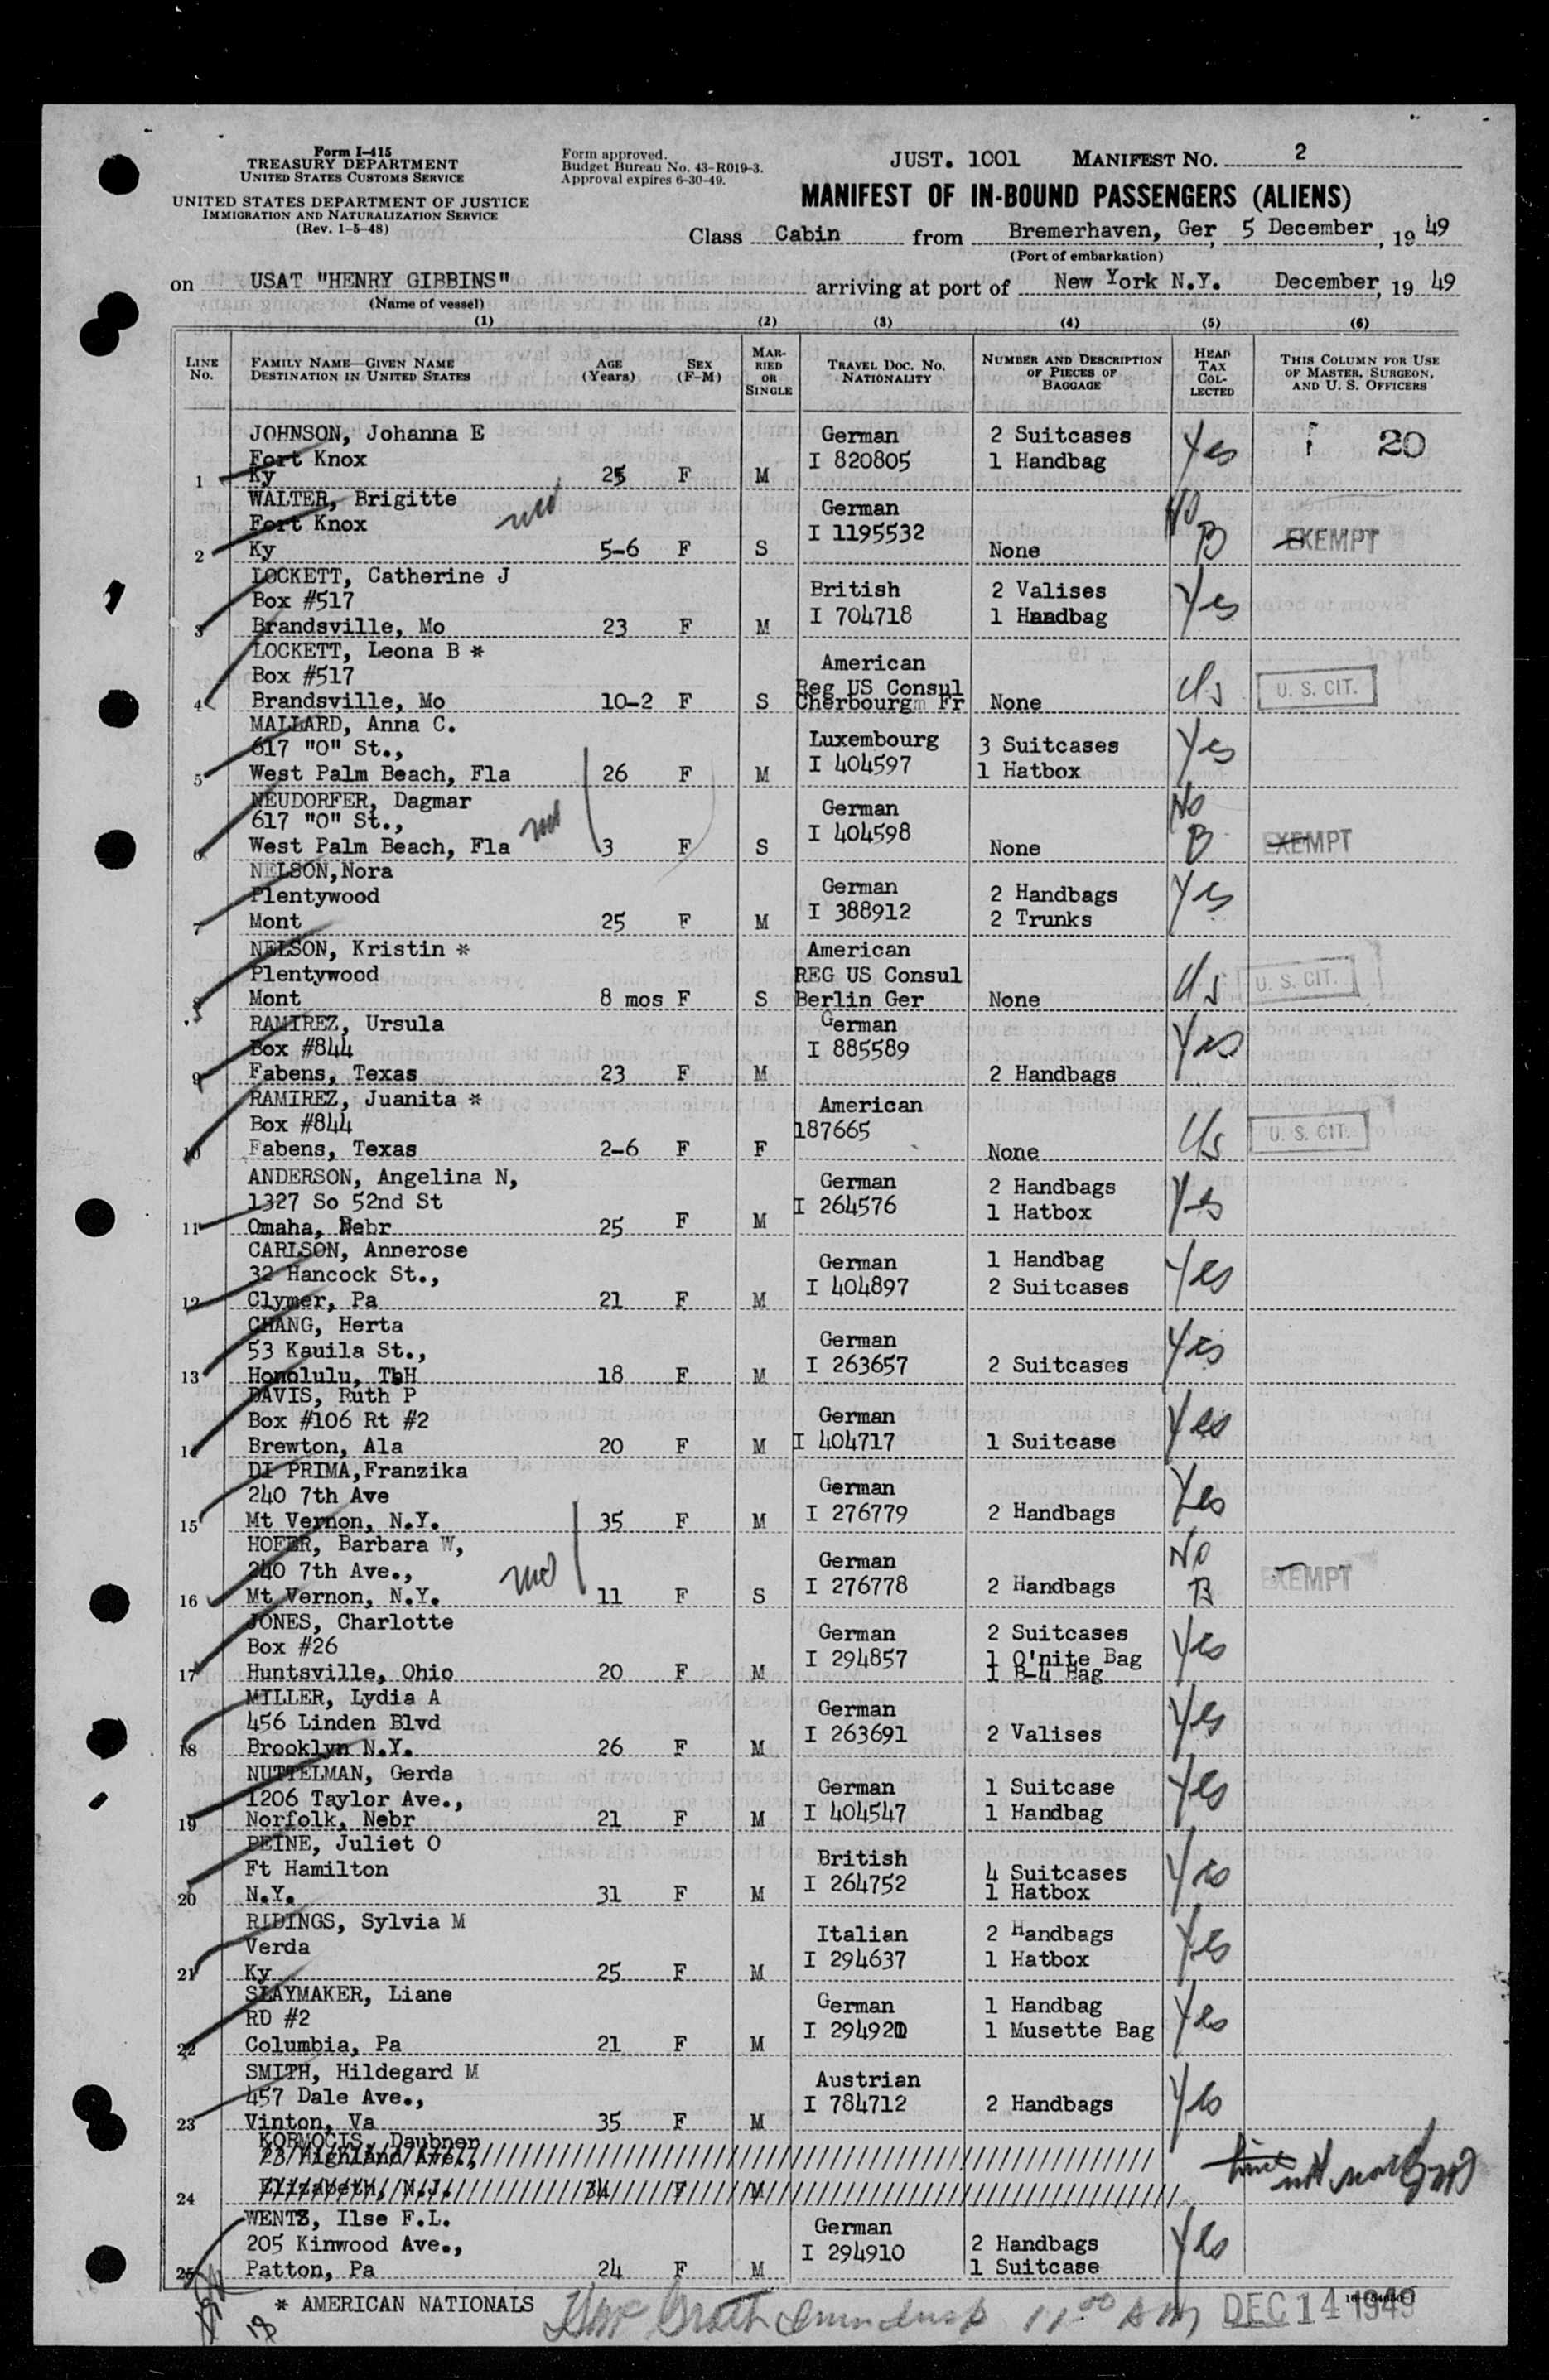 Form I-415
TREASURY DEPARTMENT
UNITED STATES CUSTOMS SERVICE
UNITED STATES DEPARTMENT OF JUSTICE
IMMIGRATION AND NATURALIZATION SERVICE
(Rev. 1-5-48)
Form approved.
Budget Bureau No. 43-R019-3.
Approval expires 6-30-49.
JUST. 1001 MANIFEST NO. 2
MANIFEST OF IN-BOUND PASSENGERS (ALIENS)
Class Cabin from Bremerhaven, Ger, 5 December, 19 49
(Port of embarkation)
on USAT "HENRY GIBBINS" arriving at port of New York N.Y. December, 19 49
(Name of vessel)
(1) (2) (3) (4) (5) (6)
LINE NO.
FAMILY NAME—GIVEN NAME
DESTINATION IN UNITED STATES
AGE (Years)
SEX (F-M)
MARRIED OR SINGLE
TRAVEL DOC. NO. NATIONALITY
NUMBER AND DESCRIPTION OF PIECES OF BAGGAGE
HEAD TAX COLLECTED
THIS COLUMN FOR USE OF MASTER, SURGEON, AND U. S. OFFICERS
JOHNSON, Johanna E German 2 Suitcases Yes 20
Fort Knox I 820805 1 Handbag
1 Ky 25 F M
WALTER, Brigitte German No
Fort Knox I 1195532 B EXEMPT
2 Ky 5-6 F S None
LOCKETT, Catherine J British 2 Valises Yes
Box #517 I 704718 1 Handbag
3 Brandsville, Mo 23 F M
LOCKETT, Leona B * American
Box #517 Reg US Consul US U. S. CIT.
4 Brandsville, Mo 10-2 F S Cherbourg Fr None
MALLARD, Anna C. Luxembourg 3 Suitcases Yes
617 "O" St., I 404597 1 Hatbox
5 West Palm Beach, Fla 26 F M
NEUDORFER, Dagmar German No
617 "O" St., I 404598 B EXEMPT
6 West Palm Beach, Fla 3 F S None
NELSON,Nora German 2 Handbags Yes
Plentywood I 388912 2 Trunks
7 Mont 25 F M
NELSON, Kristin * American
Plentywood REG US Consul US U. S. CIT.
8 Mont 8 mos F S Berlin Ger None
RAMIREZ, Ursula German Yes
Box #844 I 885589
9 Fabens, Texas 23 F M 2 Handbags
RAMIREZ, Juanita * American
Box #844 187665 US U. S. CIT.
10 Fabens, Texas 2-6 F F None
ANDERSON, Angelina N, German 2 Handbags Yes
1327 So 52nd St I 264576 1 Hatbox
11 Omaha, Nebr 25 F M
CARLSON, Annerose German 1 Handbag Yes
32 Hancock St., I 404897 2 Suitcases
12 Clymer, Pa 21 F M
CHANG, Herta German Yes
53 Kauila St., I 263657 2 Suitcases
13 Honolulu, TbH 18 F M
DAVIS, Ruth P German Yes
Box #106 Rt #2 I 404717 1 Suitcase
14 Brewton, Ala 20 F M
DI PRIMA,Franzika German Yes
240 7th Ave I 276779 2 Handbags
15 Mt Vernon, N.Y. 35 F M
HOFER, Barbara W, German No
240 7th Ave., I 276778 2 Handbags B EXEMPT
16 Mt Vernon, N.Y. 11 F S
JONES, Charlotte German 2 Suitcases Yes
Box #26 I 294857 1 O'nite Bag
17 Huntsville, Ohio 20 F M 1 B-4 Bag
MILLER, Lydia A German Yes
456 Linden Blvd I 263691 2 Valises
18 Brooklyn N.Y. 26 F M
NUTTELMAN, Gerda German 1 Suitcase Yes
1206 Taylor Ave., I 404547 1 Handbag
19 Norfolk, Nebr 21 F M
PEINE, Juliet O British 4 Suitcases Yes
Ft Hamilton I 264752 1 Hatbox
20 N.Y. 31 F M
RIDINGS, Sylvia M Italian 2 Handbags Yes
Verda I 294637 1 Hatbox
21 Ky 25 F M
SLAYMAKER, Liane German 1 Handbag Yes
RD #2 I 29492 1 Musette Bag
22 Columbia, Pa 21 F M
SMITH, Hildegard M Austrian Yes
457 Dale Ave., I 784712 2 Handbags
23 Vinton, Va 35 F M
KORMOCIS, Daubner
23 Highland Ave., not
24 Elizabeth, N.J. 34 F M
WENTZ, Ilse F.L. German 2 Handbags Yes
205 Kinwood Ave., I 294910 1 Suitcase
25 Patton, Pa 24 F M
* AMERICAN NATIONALS 11 00 AM DEC 14 1949